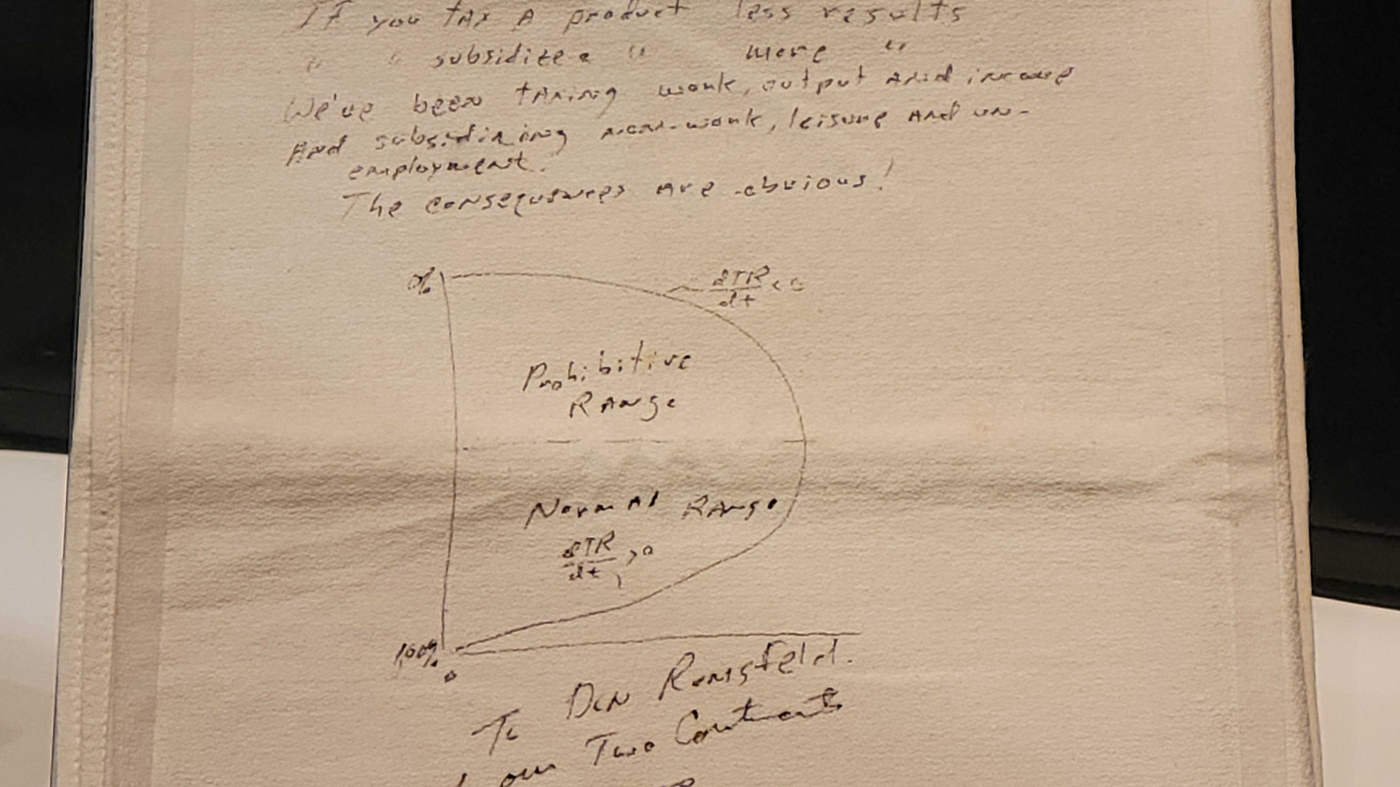 If you tax a product less results
" " subsidize a " more "
We've been taxing work, output and income
and subsidizing non-work, leisure and un-
employment.
The consequences are obvious!
0%
dTR/dt < 0
Prohibitive
Range
Normal Range
dTR/dt > 0
100%
0
To Don Rumsfeld
our Two Continents